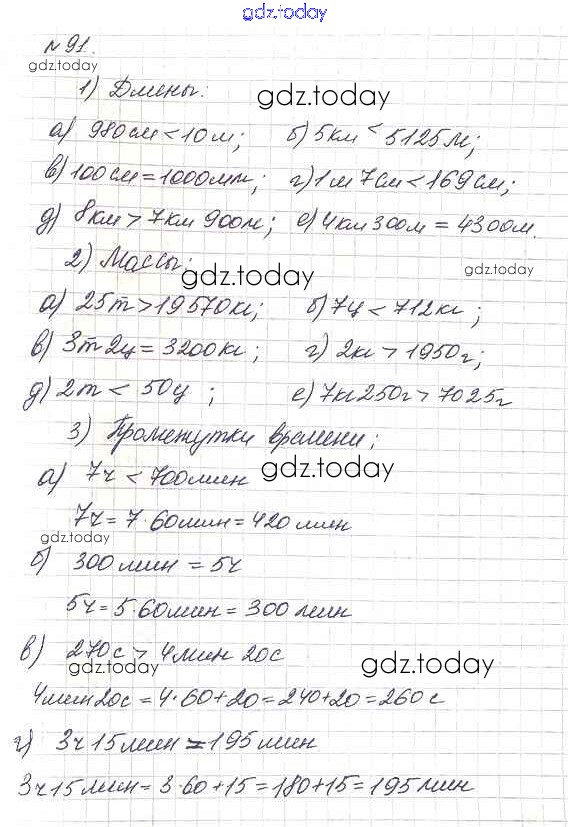 gdz.today
№ 91.
gdz.today
1) Длины:
gdz.today
а) 980см < 10м; б) 5км < 5125м;
в) 100см = 1000мм; г) 1м 7см < 169см;
д) 8км > 7км 900м; е) 4км 300м = 4300м.
2) Массы:
gdz.today
gdz.today
а) 25т > 19570кг; б) 7ц < 712кг;
в) 3т 2ц = 3200кг; г) 2кг > 1950г;
д) 2т < 50ц; е) 7кг 250г > 7025г
3) Промежутки времени;
а) 7ч < 700мин
gdz.today
7ч = 7·60мин = 420мин
gdz.today
б) 300мин = 5ч
5ч = 5·60мин = 300мин
в) 270с > 4мин 20с
gdz.today
gdz.today
4мин 20с = 4·60+20 = 240+20 = 260с
г) 3ч 15мин = 195мин
3ч 15мин = 3·60+15 = 180+15 = 195мин